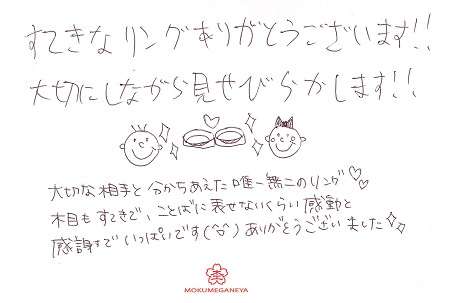 すてきなリングありがとうございます!!
大切にしながら見せびらかします!!
大切な相手と分からあえた唯一無二のリング♡
木目もすてきで、ことばに表せないくらい感動と
感謝でいっぱいです(^^)ありがとうございました
MOKUMEGANEYA